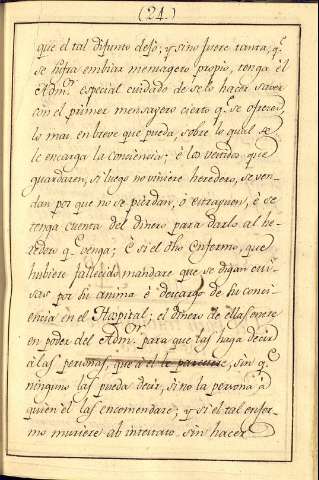 (24.)
que el tal difunto dexó; y sino fuere tanta, q.ᵉ
se sufra embiar mensagero propio, tenga el
Adm.ᵒʳ especial cuidado de selo hacer saver
con el primer mensagero cierto q.ᵉ se ofrezca,
lo mas en breve que pueda, sobre lo qual se
le encarga la conciencia; é los vestidos que
guardaren, si luego no viniere heredero, se ven-
dan por que no se pierdan, ó estraguen, é se
tenga cuenta del dinero para darlo al he-
redero q.ᵉ venga; É si el dho Enfermo, que
hubiere fallecido mandare que se digan
sas por su anima é descargo de su conci-
encia en el Hospital; el dinero de ellas
en poder del Adm.ᵒʳ para que las haga decir
á las personas, que á el le parecere, sin q.ᵉ
ninguno las pueda decir, sino la persona á
quien él las encomendare; y si el tal enfer-
mo muriere ab intestato sin hacer